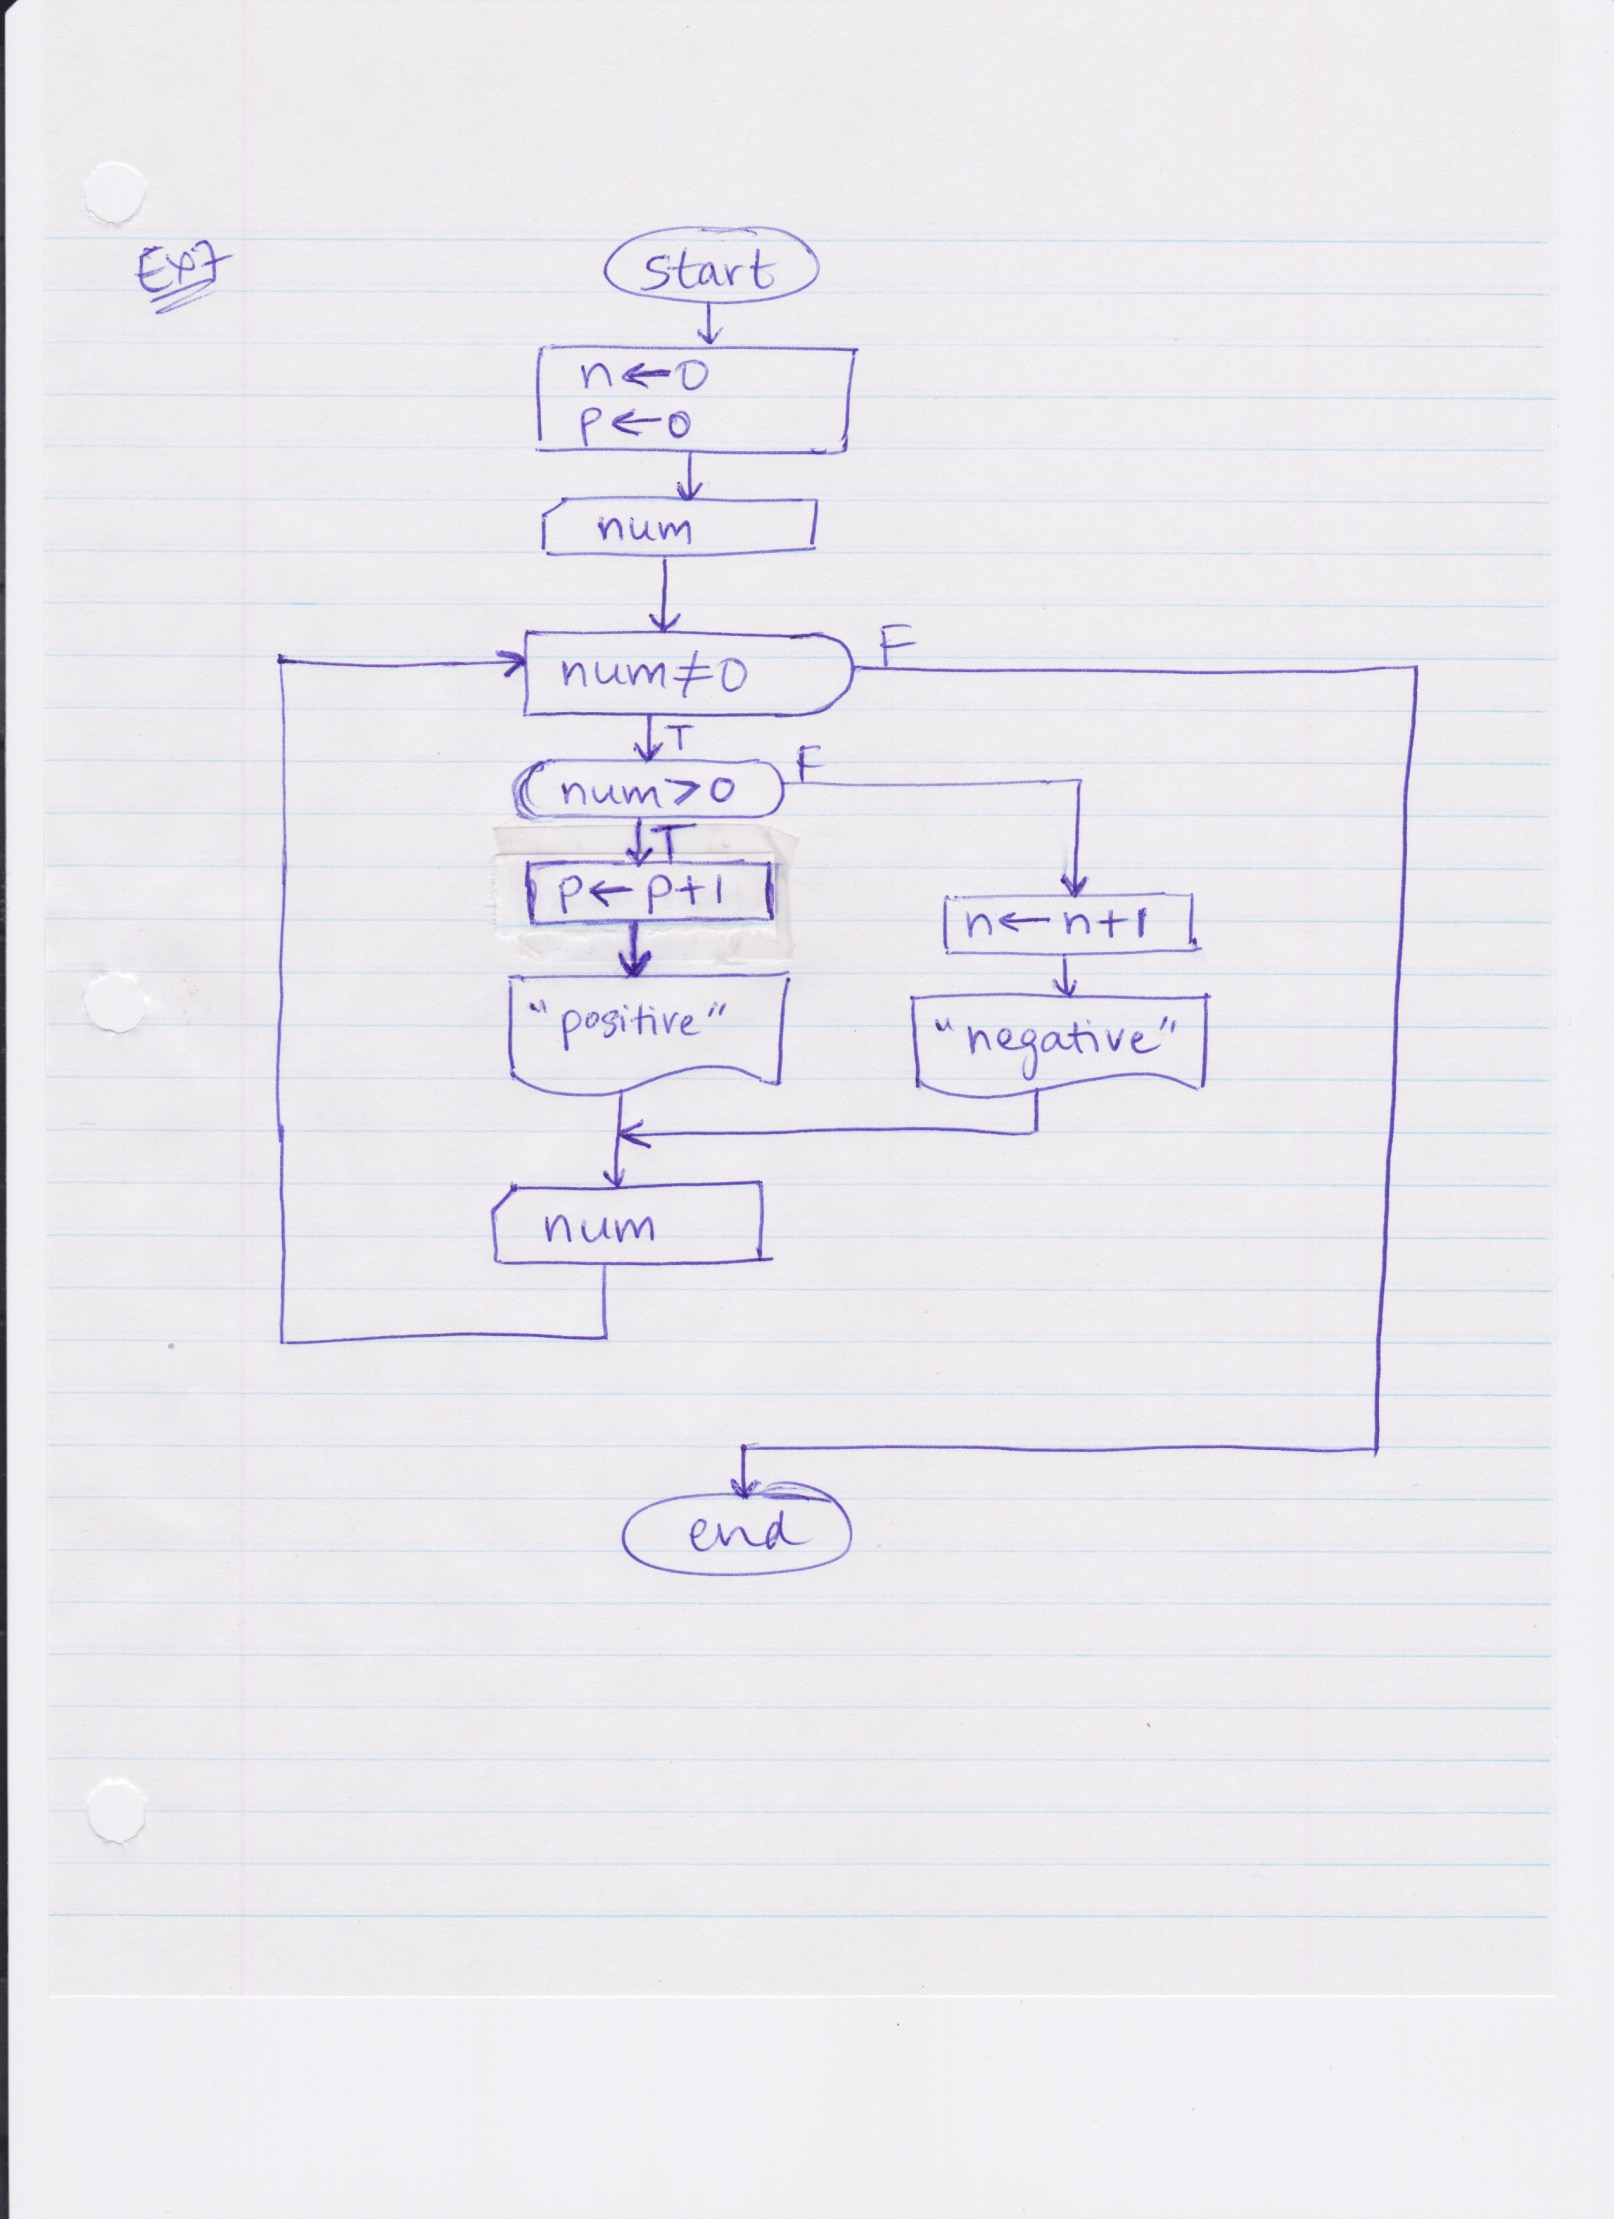 Ex7
start
n ← 0
p ← 0
num
num ≠ 0
F
T
num > 0
F
T
p ← p+1
n ← n+1
"positive"
"negative"
num
end